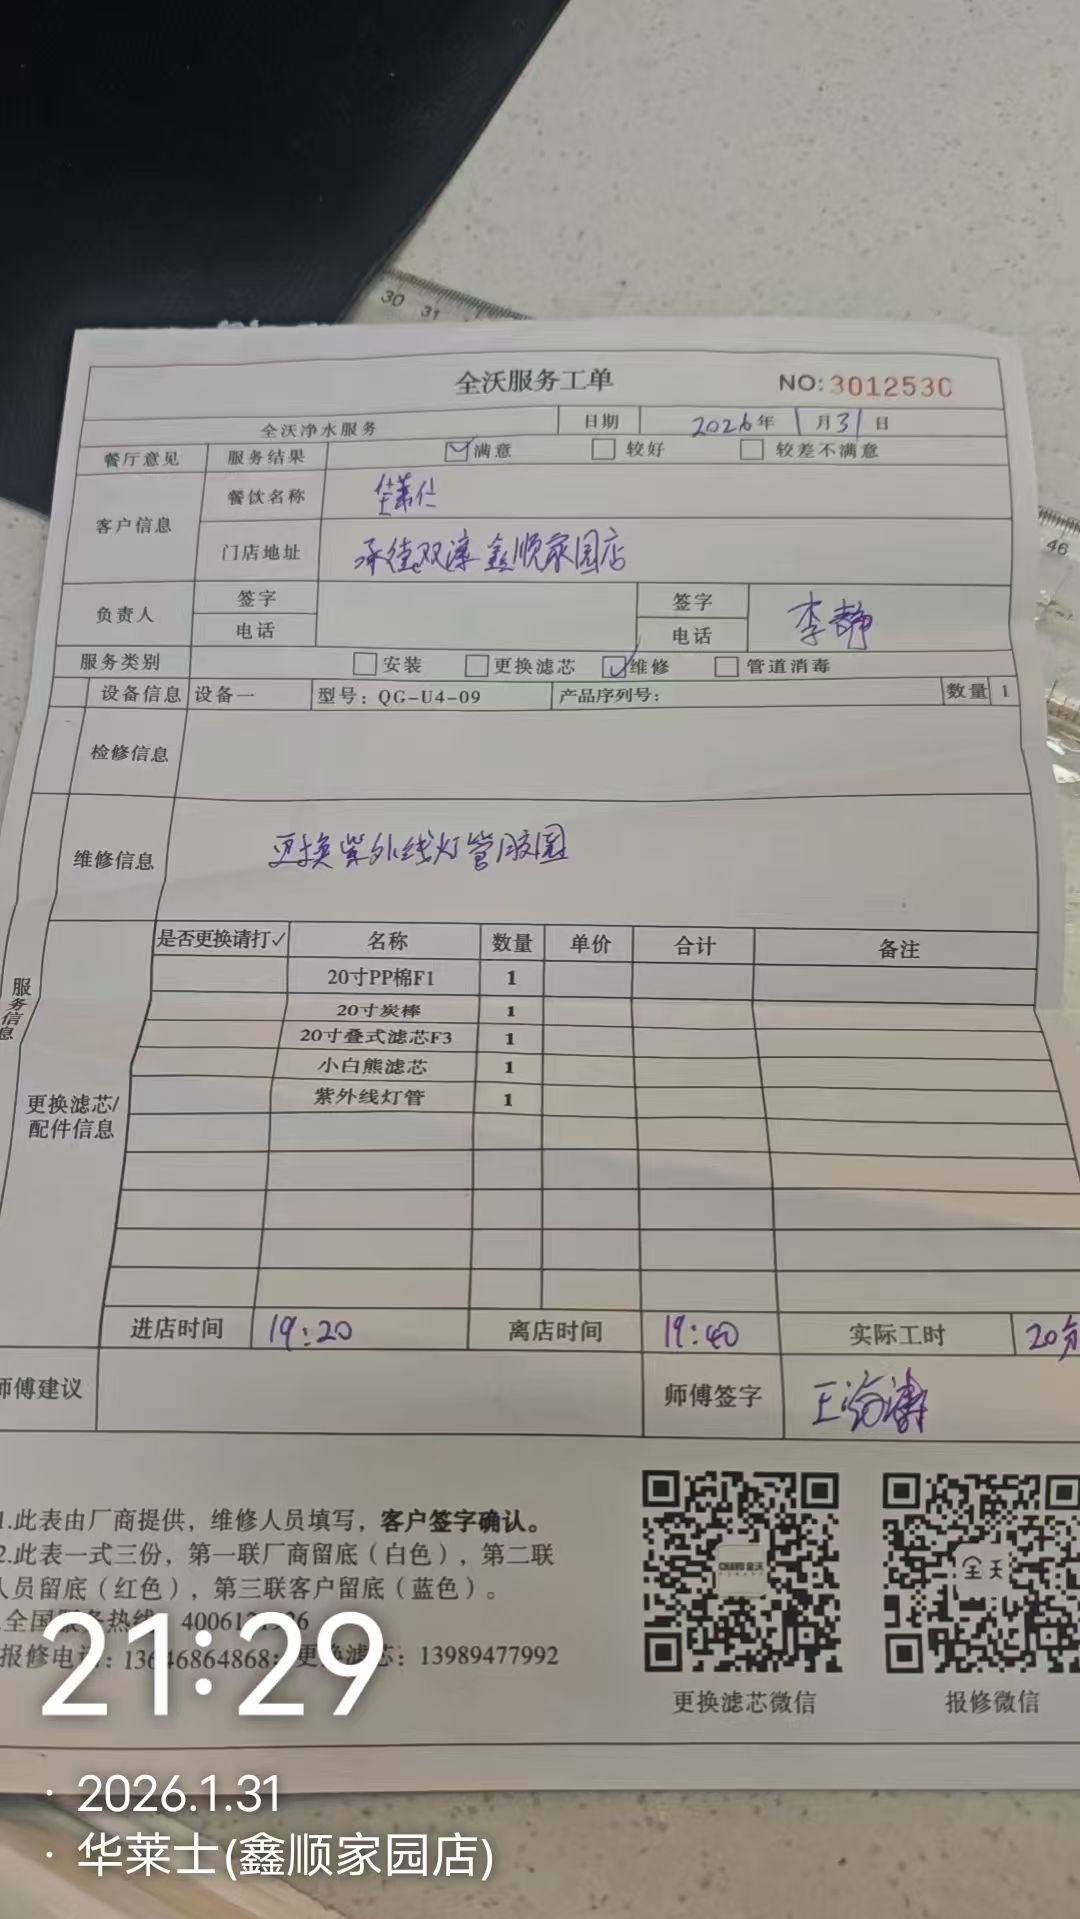 30 31
46
全沃服务工单 NO:3012530
全沃净水服务 日期 2026年 1月31日
餐厅意见 服务结果 满意 较好 较差不满意
客户信息 餐饮名称 华莱仕
门店地址 承德双滦鑫顺家园店
负责人 签字 电话 签字 电话 李静
服务类别 安装 更换滤芯 ✓维修 管道消毒
设备信息 设备一 型号：QG-U4-09 产品序列号： 数量 1
检修信息
维修信息 更换紫外线灯管胶圈
服务信息
更换滤芯/配件信息
是否更换请打✓ 名称 数量 单价 合计 备注
20寸PP棉F1 1
20寸炭棒 1
20寸叠式滤芯F3 1
小白熊滤芯 1
紫外线灯管 1
进店时间 19:20 离店时间 19:40 实际工时 20分
师傅建议 师傅签字
1.此表由厂商提供，维修人员填写，客户签字确认。
2.此表一式三份，第一联厂商留底（白色），第二联
人员留底（红色），第三联客户留底（蓝色）。
全国服务热线
报修电话： 更换滤芯：13989477992
全天
更换滤芯微信 报修微信
21:29
· 2026.1.31
· 华莱士(鑫顺家园店)